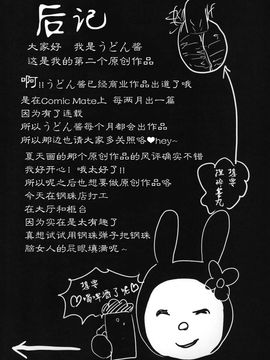 后记
大家好 我是うどん酱
这是我的第二个原创作品
啊!!うどん酱已经商业作品出道了哦
是在Comic Mate上 每两月出一篇
因为有了连载
所以うどん酱每个月都会出作品
所以那边也请大家多关照咯♥hey~
夏天画的那个原创作品的风评确实不错
我好开心！哦太好了!!
所以呢之后也想要做原创作品咯
今天在钢珠店打工
在大厅和柜台
因为实在是太有趣了
真想试试用钢珠弹子把钢珠
脑女人的屁眼填满呢~